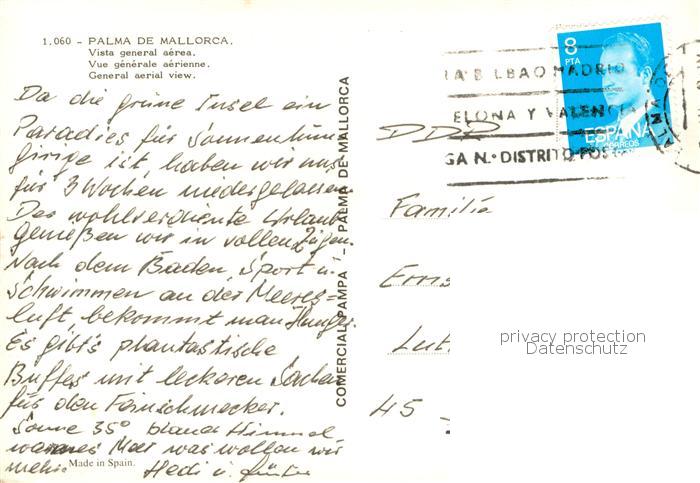 1.060 - PALMA DE MALLORCA.
Vista general aérea.
Vue générale aérienne.
General aerial view.
Da die grüne Insel ein
Paradies für Sonnenhung
girige ist, haben wir uns
für 3 Wochen niedergelassen.
Den wohlverdiente Urlaub
genießen wir in vollen Zügen.
Nach dem Baden, Sport u.
Schwimmen an der Meeres=
luft, bekommt man Hunger.
Es gibt's phantastische
Buffes mit leckeren Sachen
für den Feinschmecker.
Sonne 35° blauer Himmel
warmes Meer was wollen wir
mehr. Hedi u. Günter
Made in Spain.
COMERCIAL PAMPA - PALMA DE MALLORCA
8
PTA
ESPAÑA
CORREOS
BILBAO MADRID
ELONA Y VALENCIA
GA N.º DISTRITO POS
DDR
Familie
Erns
Lut
45
privacy protection
Datenschutz